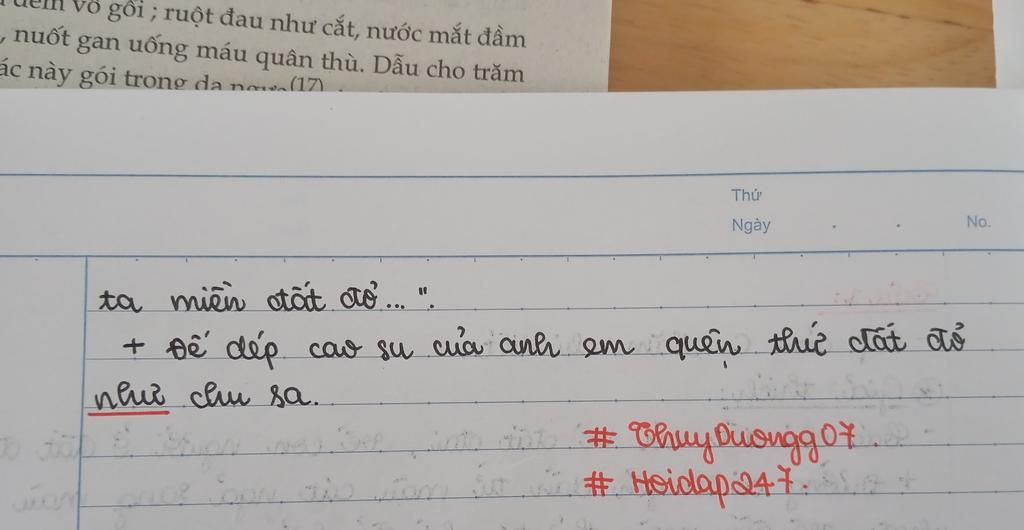 đêm vỗ gối ; ruột đau như cắt, nước mắt đầm
, nuốt gan uống máu quân thù. Dẫu cho trăm
ác này gói trong da ngựa(17)
Thứ
Ngày . . No.
ta miền đất đỏ... ".
+ Đế dép cao su của anh em quện thứ đất đỏ
như chu sa.
# ThuyDuongg07.
# Hoidap247.